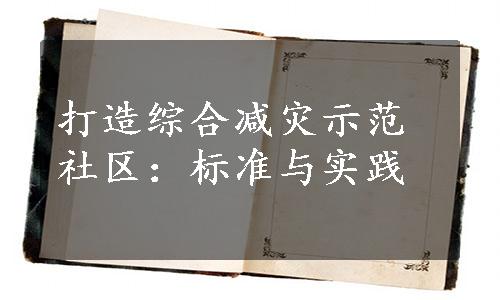 打造综合减灾示范
社区：标准与实践